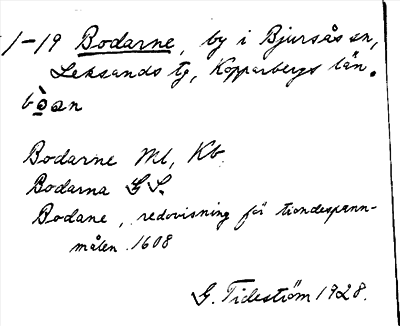 1-19 Bodarne, by i Bjursås sn,
Leksands tg, Kopparbergs län.
bò̱an
Bodarne Ml, Kb
Bodarna GS.
Bodane, redovisning för tiondespann-
målen 1608
G. Tideström 1928.